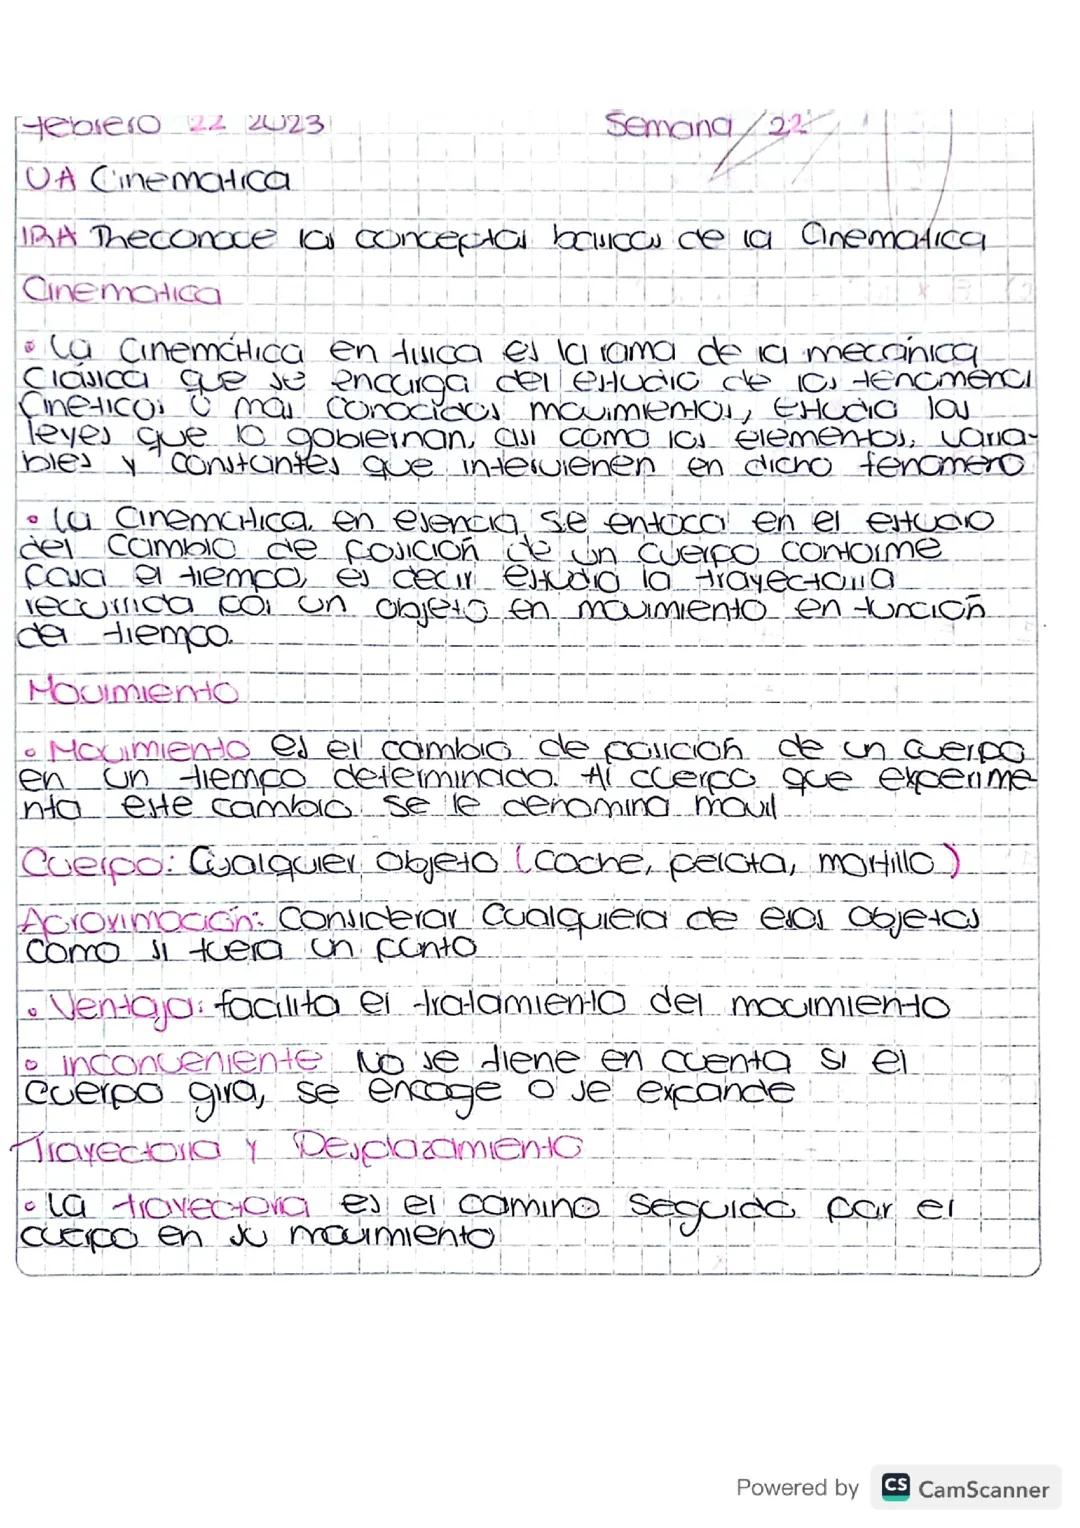 Febrero 22 2023 Semana 22
UA Cinematica
IRA Theconoce los conceptos basicos de la Cinematica
Cinematica
• La Cinemática en fisica es la rama de la mecánica
Clásica que se encarga del estudio de los fenomenos
Cineticos o más conocidos movimientos, Estudia las
leyes que lo gobiernan, asi como los elementos, varia-
bles y constantes que intervienen en dicho fenomeno
• La Cinematica, en esencia, se enfoca en el estudio
del cambio de posición de un cuerpo conforme
pasa el tiempo, es decir estudia la trayectoria
recurrida por un objeto en movimiento en función
del tiempo.
Movimiento
• Movimiento es el cambio de posición de un cuerpo
en un tiempo determinado. Al cuerpo que experime
nta este cambio se le denomina movil
Cuerpo: Cualquier objeto (coche, pelota, martillo)
Aproximación: Considerar Cualquiera de esos objetos
como si fuera un punto
• Ventaja: facilita el tratamiento del movimiento
• inconveniente No se tiene en cuenta si el
cuerpo gira, se encoge o se expande
Trayectoria y Desplazamiento
• La trayectoria es el camino seguido por el
cuerpo en su movimiento
Powered by CS CamScanner